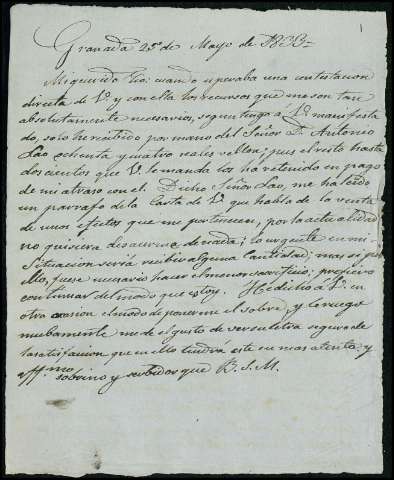 1
Granada 25 de Mayo de 1833=
Mi querido Tio: cuando esperaba una contestacion
directa de V. y con ella los recursos que me son tan
absolutamente necesarios, segun tengo á V. manifesta
do, solo he recibido por mano del Señor D. Antonio
Lao ochenta y cuatro reales vellon; pues el resto hasta
doscientos que V. le manda los ha retenido en pago
de mi atraso con el. Dicho Señor Lao, me ha leido
un parrafo de la Carta de V. que habla de la venta
de unos efectos que me pertenecen, por la actualidad
no quisiera desacerme de nada; lo urgente en mi
Situacion seria recibir alguna Cantidad; mas si por
ello, fuese necesario hacer el menor sacrificio; prefiero
continuar del modo que estoy. He dicho á V. en
otra ocasion el modo de ponerme el sobre, y le ruego
nuebamente me de el gusto de ver su letra seguro de
la satisfaccion que en ello tendrá este su mas atento y
affmo sobrino y servidor que B. S. M.